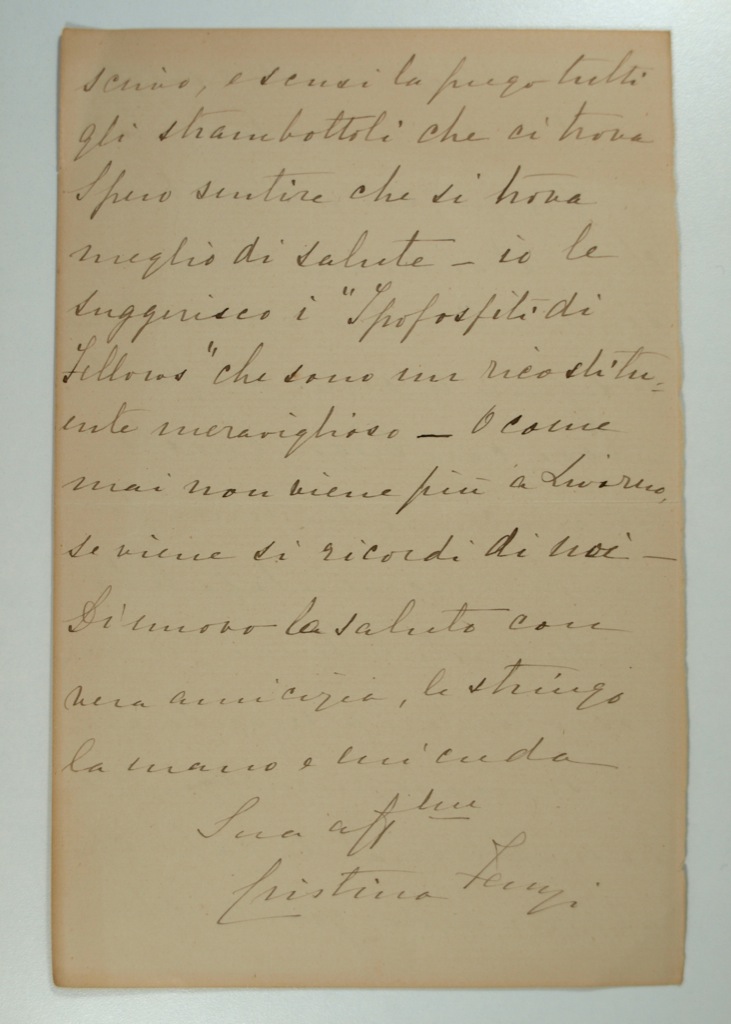 scrivo, e scusi la prego tutti
gli strambottoli che ci trova
Spero sentire che si trova
meglio di salute – io le
suggerisco i "Ipofosfiti di
Fellows" che sono un ricostitu=
ente meraviglioso – O come
mai non viene più a Livorno,
se viene si ricordi di noi –
Di nuovo la saluto con
vera amicizia, le stringo
la mano e mi creda
Sua aff
Cristina